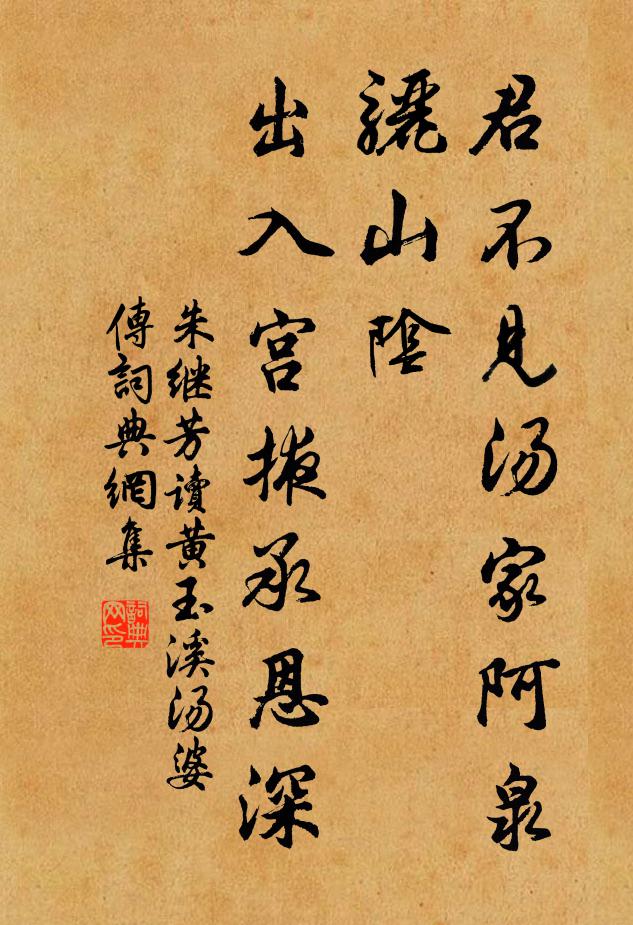 君不见汤家阿泉
骊山陰
出入宫掖承恩深
朱继芳读黄玉溪汤婆
傳詞典網集
詞典网印